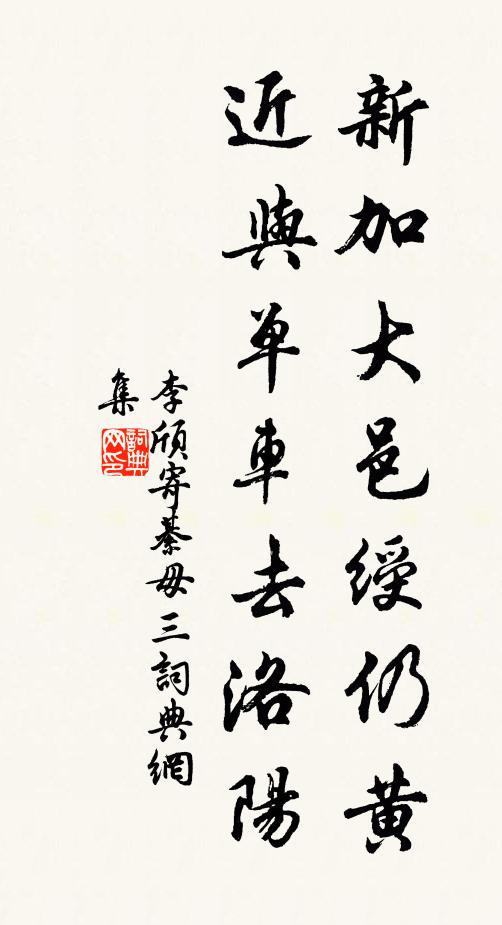 新加大邑綬仍黃
近與单車去洛陽
李頎寄綦毋三詞典網
集
詞典网印